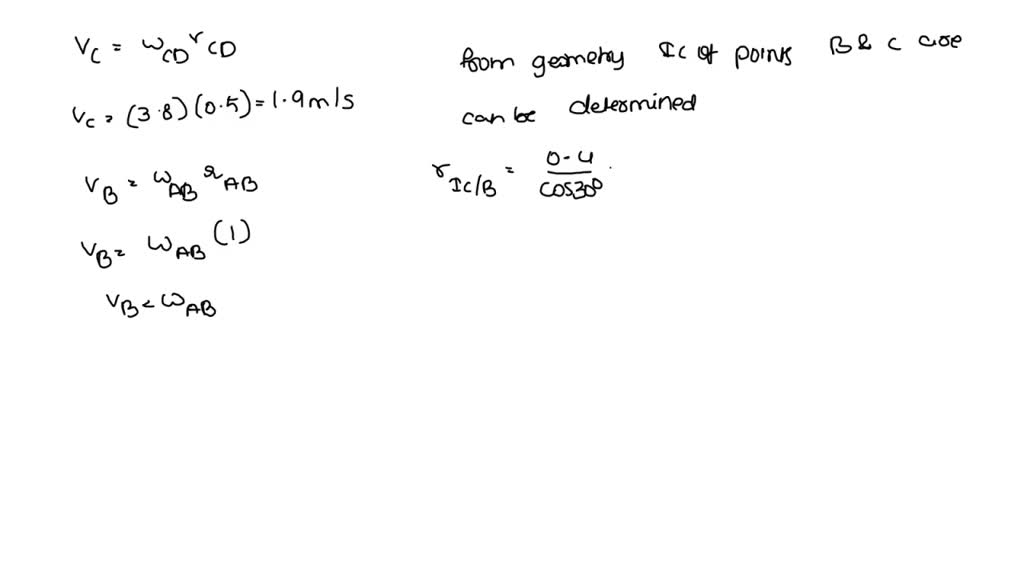 V_C = ω_CD r_CD
V_C = (3.8)(0.5) = 1.9 m/s
V_B = ω_AB r_AB
V_B = ω_AB (1)
V_B = ω_AB
from geometry Ic of points B & C are
can be determined
r_Ic/B = 0.4 / cos30°